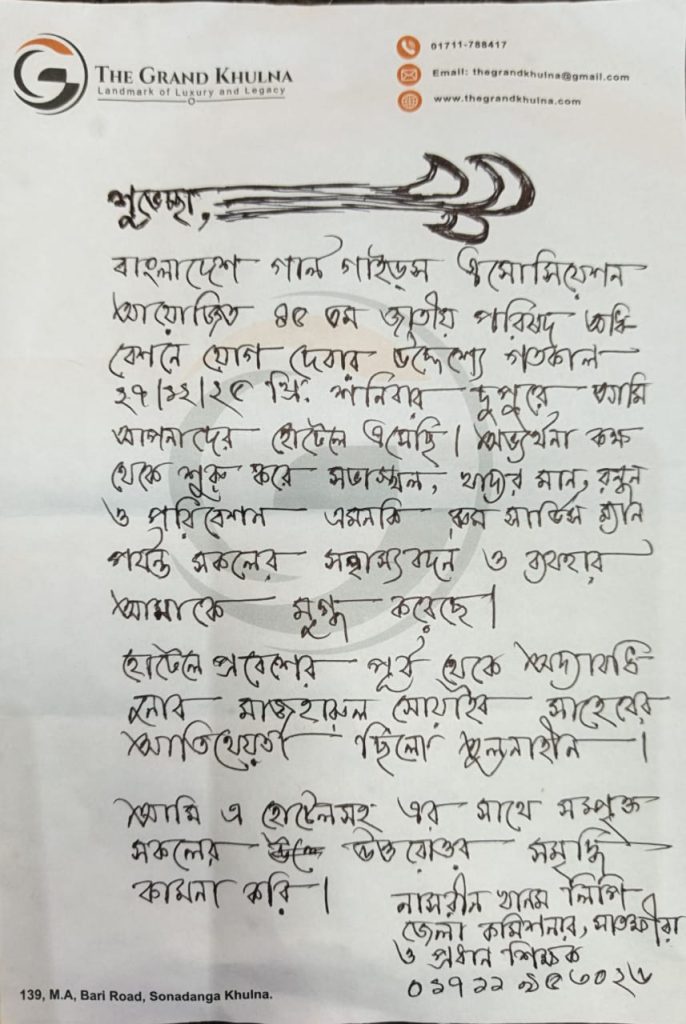 THE GRAND KHULNA
Landmark of Luxury and Legacy
01711-788417
Email: thegrandkhulna@gmail.com
www.thegrandkhulna.com
শুভেচ্ছা,
বাংলাদেশ গার্ল গাইড্‌স এসোসিয়েশন
আয়োজিত ৪৫ তম জাতীয় পরিষদ অধি
বেশনে যোগ দেবার উদ্দেশ্যে গতকাল
২৭/১২/২৫ খ্রি. শনিবার দুপুরে আমি
আপনাদের হোটেলে এসেছি। অভ্যর্থনা কক্ষ
থেকে শুরু করে সভাস্থল, খাদ্যের মান, রন্ধন
ও পরিবেশন এমনকি রুম সার্ভিস ম্যান
পর্যন্ত সকলের সহাস্যবদন ও ব্যবহার
আমাকে মুগ্ধ করেছে।
হোটেলে প্রবেশের পূর্ব থেকে অদ্যাবধি
জনাব মাজহারুল সোয়াইব সাহেবের
আতিথেয়তা ছিলো তুলনাহীন।
আমি এ হোটেলসহ এর সাথে সম্পৃক্ত
সকলের উত্তরোত্তর সমৃদ্ধি
কামনা করি।
নাসরীন খানম লিপি
জেলা কমিশনার, সাতক্ষীরা
ও প্রধান শিক্ষক
139, M.A, Bari Road, Sonadanga Khulna.